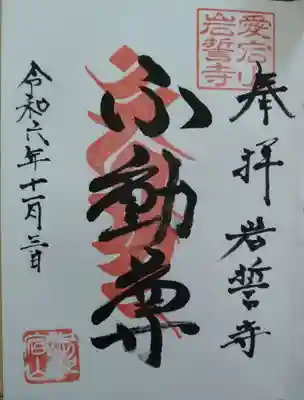 愛宕山
岩誓寺
奉拝 岩誓寺
不動尊
令和六年十一月三日
愛宕山